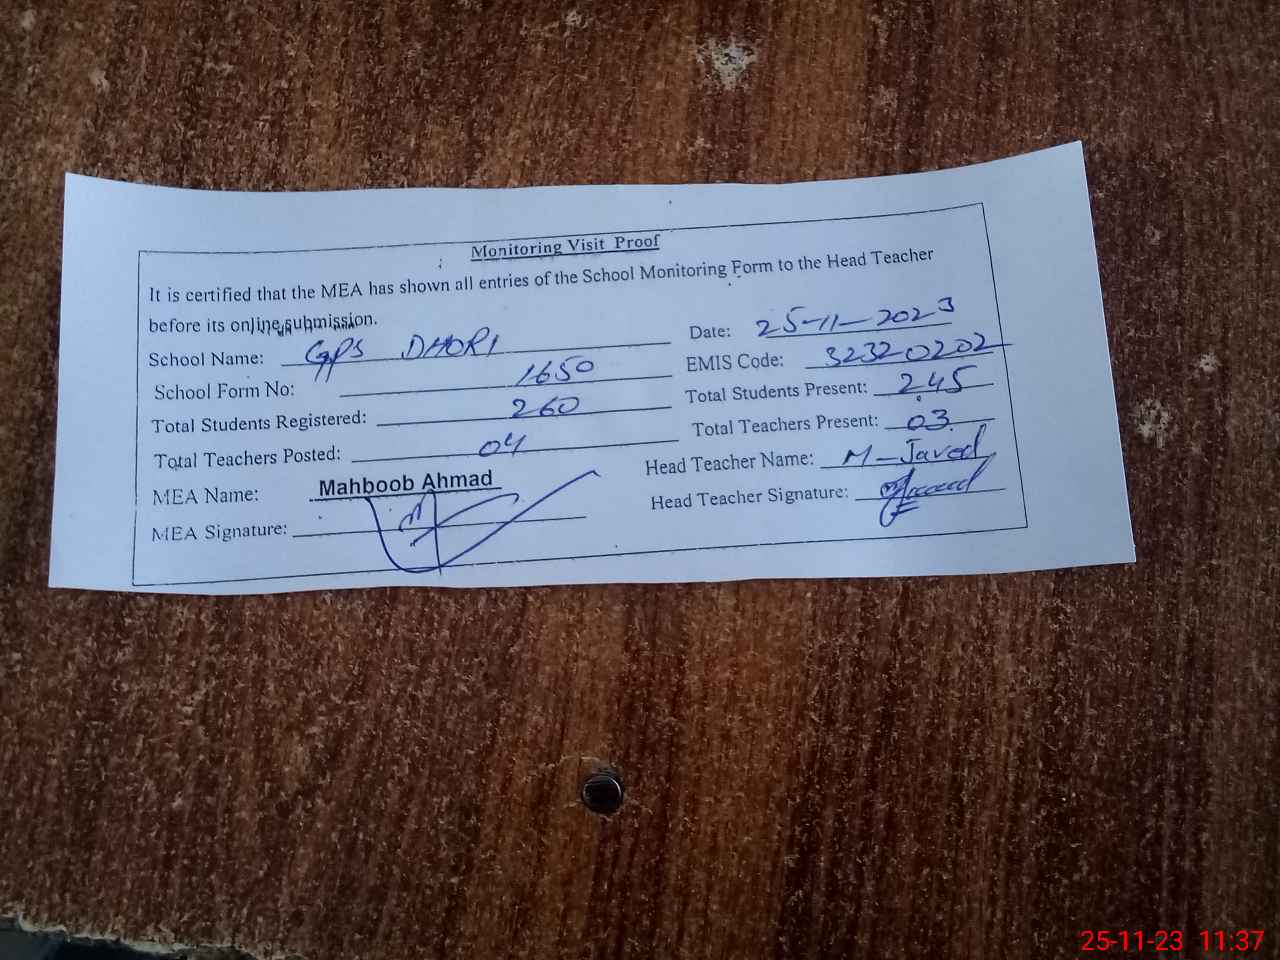 Monitoring Visit Proof
It is certified that the MEA has shown all entries of the School Monitoring Form to the Head Teacher
before its online submission.
School Name: GPS DHORI Date: 25-11-2023
School Form No: 1650 EMIS Code: 32320202
Total Students Registered: 260 Total Students Present: 245
Total Teachers Posted: 04 Total Teachers Present: 03
MEA Name: Mahboob Ahmad Head Teacher Name: M-Javed
MEA Signature: Head Teacher Signature:
25-11-23 11:37